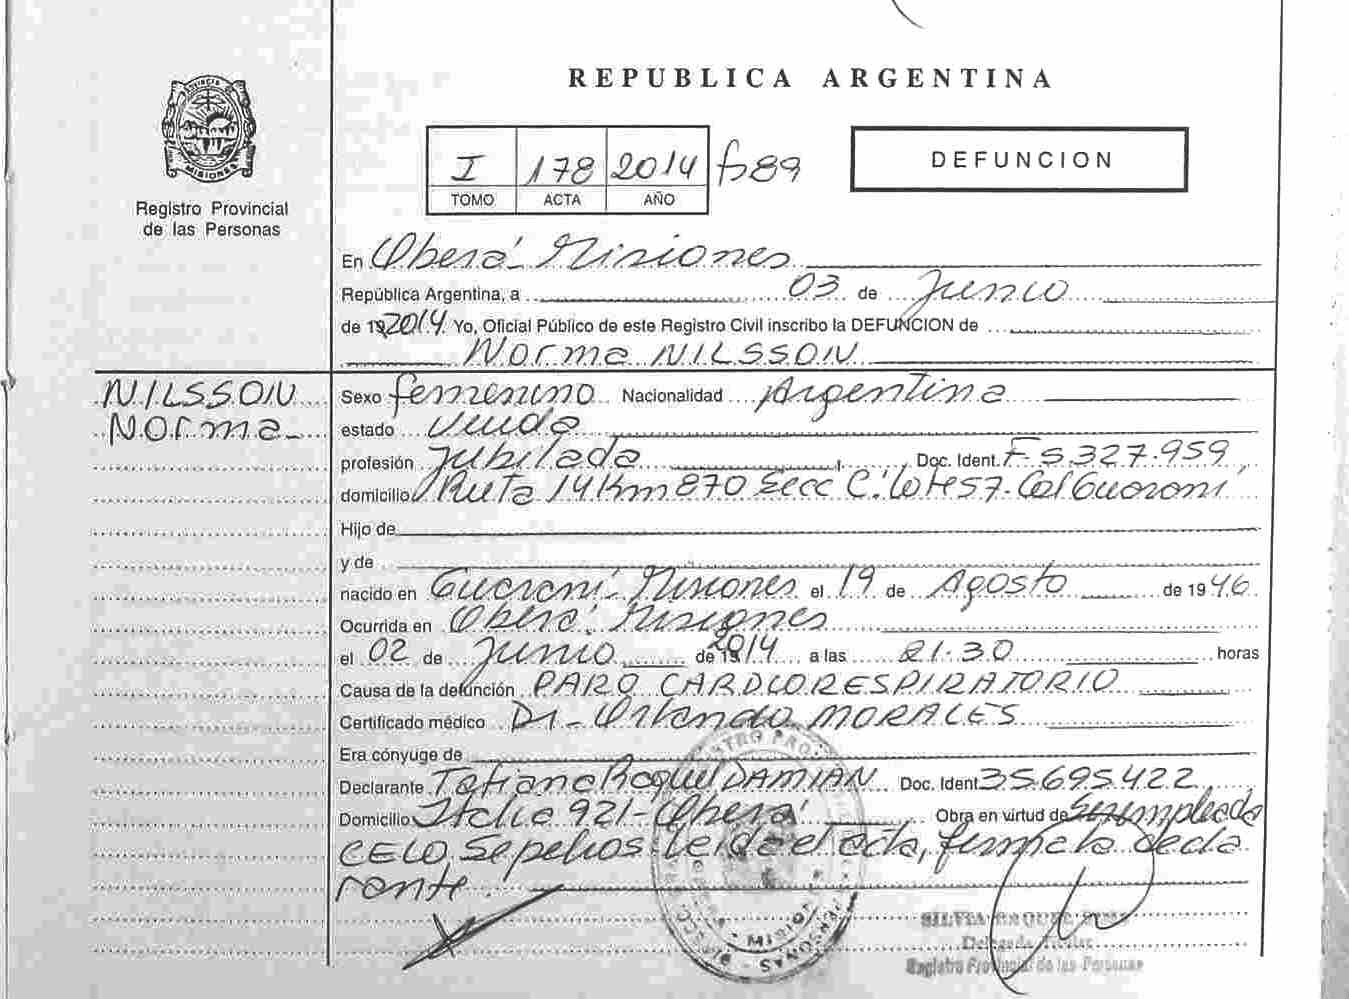 REPUBLICA ARGENTINA
PROVINCIA DE MISIONES
Registro Provincial
de las Personas
I 178 2014 fº89
TOMO ACTA AÑO
DEFUNCION
En Oberá Misiones
República Argentina, a 03 de Junio
de 19 2014 Yo, Oficial Público de este Registro Civil inscribo la DEFUNCION de
Norma NILSSON
NILSSON
Norma
Sexo femenino Nacionalidad Argentina
estado viuda
profesión Jubilada Doc. Ident. F 5.327.959
domicilio Ruta 14 Km 870 Secc C. Lote 57. Cal Guaraní
Hijo de
y de
nacido en Guaraní Misiones el 19 de Agosto de 1946
Ocurrida en Oberá Misiones
el 02 de Junio de 2014 a las 21.30 horas
Causa de la defunción PARO CARDIORESPIRATORIO
Certificado médico Dr. Orlando MORALES
Era cónyuge de
Declarante Tatiana Raquel DAMIAN Doc. Ident 35695422
Domicilio Italia 921 - Oberá Obra en virtud de Ser empleada
CELO Sepelios Leida el acta, firma la decla
rante
Delegada Titular
Registro Provincial de las Personas